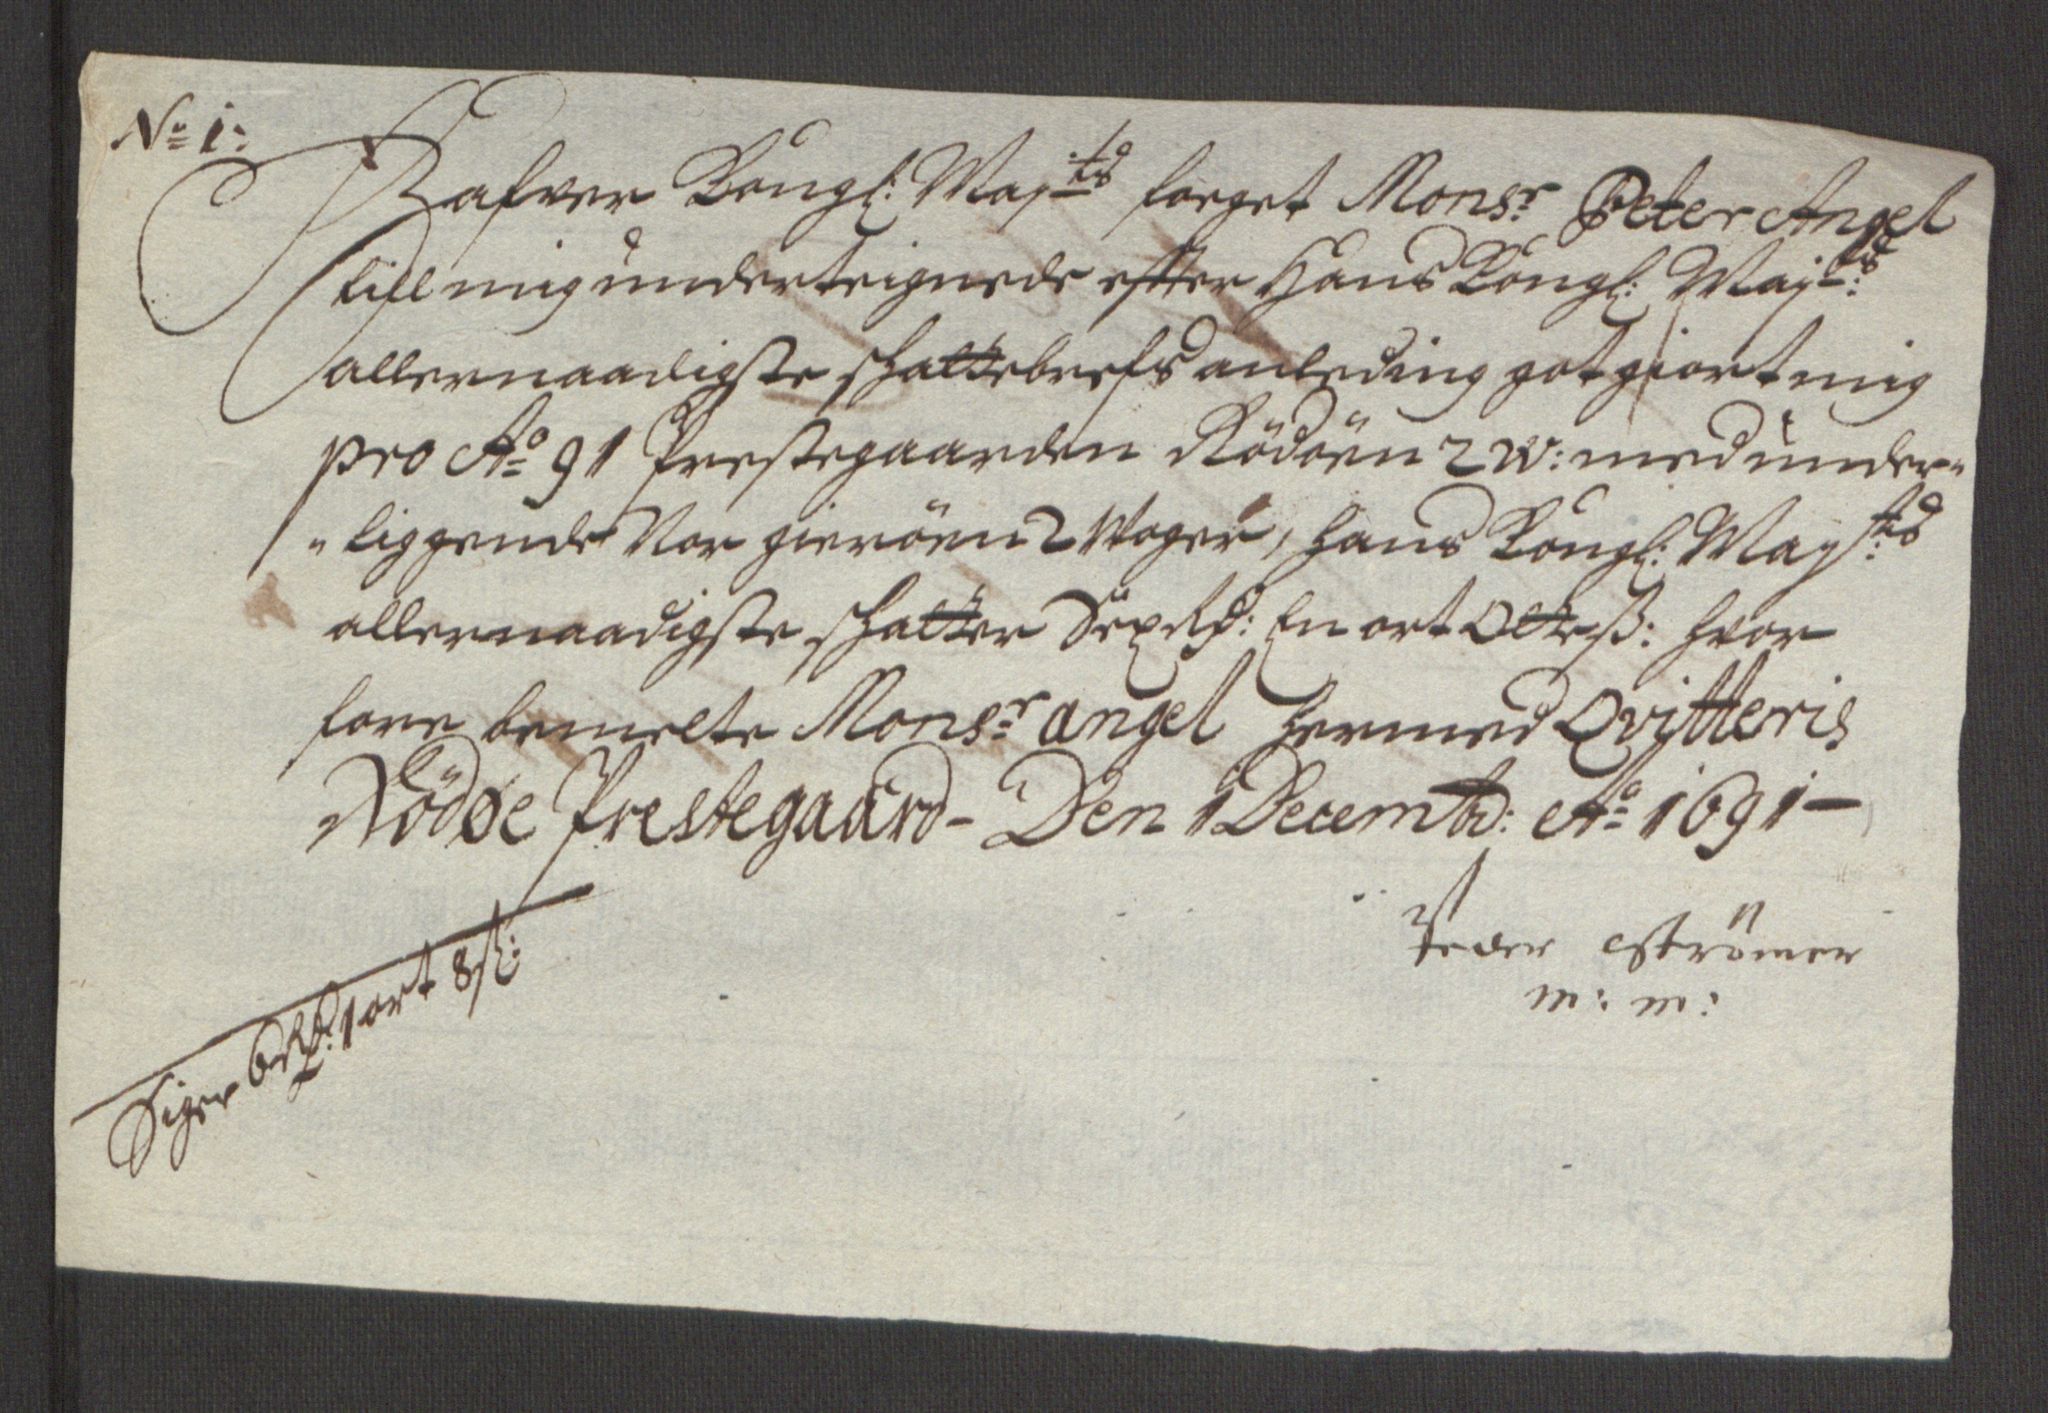 No 1:
Hafver Kongl: Maytts foeget Monsr Peter Angel
till mig underteignede efter Hans Kongl: Mayts:
allernaadigste schattebrefs anleding got giort mig
pro Ao 91 Prestegaarden Rödöen 2 W: med under-
-liggende Nor gieröen 2 Woger, Hans Kongl: Mayts:
allernaadigste schatter Sex Rd: En ort Otte ß: hvor
fore bemelte Monsr Angel hermed Qvitteris
Rödöe Prestegaard - Den 1 Decembr: Ao 1691 -
Peder Strömer
m: m:
Siger 6 Rd: 1 ort 8 ß: